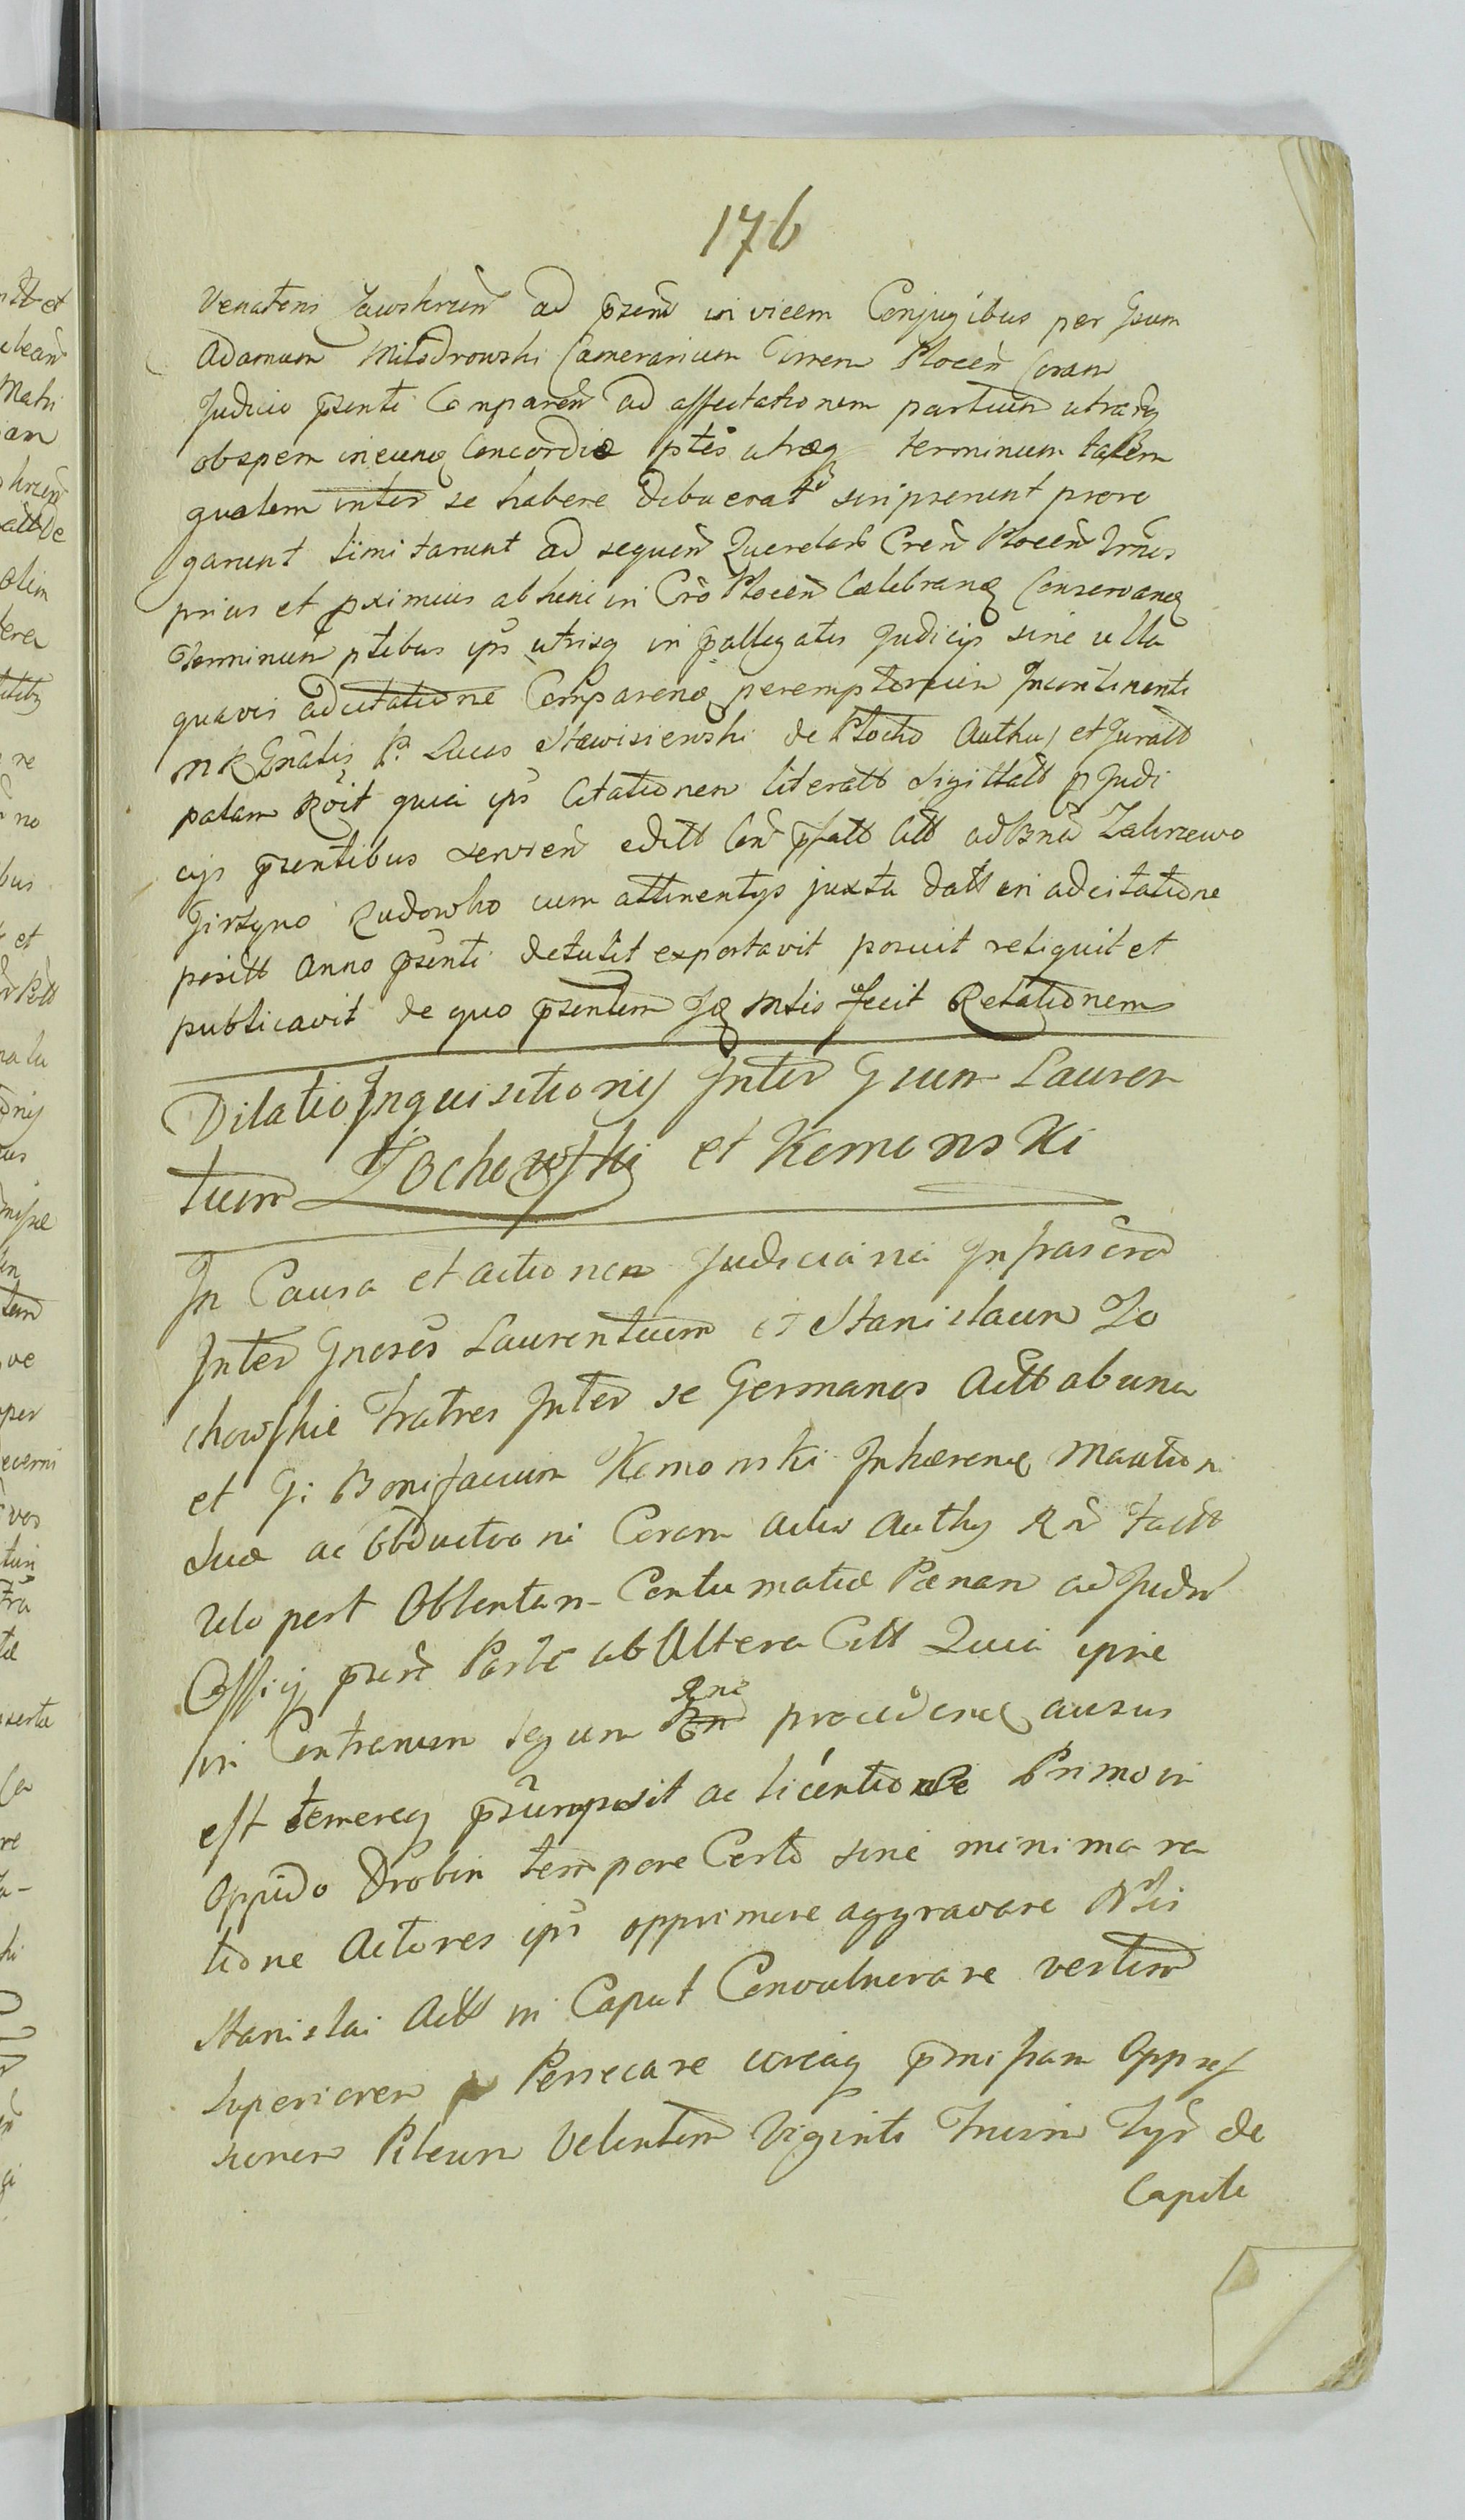 176
Venatoris Zawskrzen ad przens in vicem Conjugibus per Gsum
Adamum Milodrowski Camerarium Terren Plocen Coram
Judicio psenti Comparen ad affectationem partium utrarq
ob spem ineunæ Concordiæ ptes utræq terminum talem
qualem inter se habere debuerat suscripserunt proro
garunt limitarunt ad sequen Querelar Cren Plocen Trnos
prius et pximius ab hinc in Cro Plocen Celebranæ Conservanæ
Terminum ptibus ips utrisq in pallegatis Judicijs sine ulla
quavis adcitatione Comparenæ peremptorium Incontinenti
M R Gnalis P. Lucas Stawisiewski de Plocko Authus et Juratt
palam Roit quia ips Citationem literatt Sigillatt p Judi
cijs psentibus servien editt Con pfatt Citt ad Bna Zakrzewo
Girtyno Rudowko cum attinentijs juxta datt in adcitatione
positt Anno psenti detulit exportavit posuit reliquit et
publicavit de quo psentem Jæ Mtis fecit Relationem
Dilatio Inquisitionis Inter Gsum Lauren
tium Zochowski et Kemonski
In Causa et actione Judiciaria Infrascra
Inter Gnosos Laurentium et Stanislaum Zo
chowskie Fratres Inter se Germanos Actt ab una
et G. Bonifacium Kemonski Inhærenæ Mantioni
Suæ ac Obductioni Coram Actis Authcis Rnd factt
Velo post Obtentam Contumatiæ Pænam ad Judm
Officij psens Parte ab Altera Citt Quia ipse
in Contrarium legum Rni procedenæ ausus
est temereq psumpsit ac licentiose Primo in
Oppido Drobin tempore Certo sine minima ra
tione Actores ips opprimere aggravare Nlis
Stanislai Actt in Caput Convulnerare vestem
Superiorem Persecare circaq pmissam Oppres
sionem Pileum Valentem Viginti Trium Tyn de
Capite